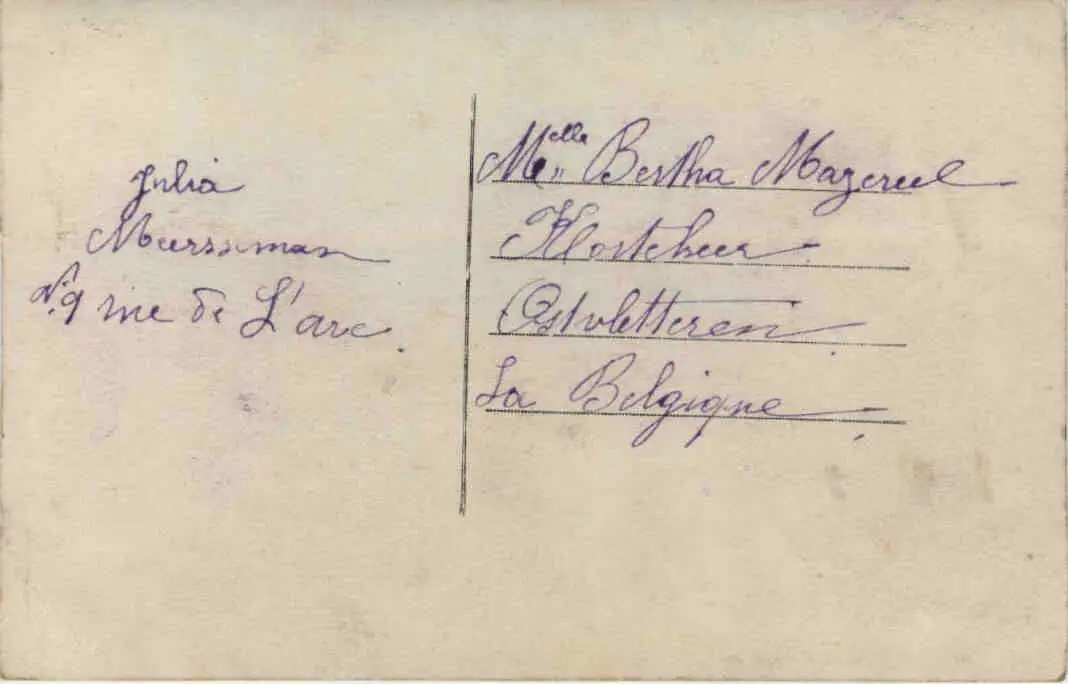 Julia
Meerssman
N.9 rue de L'arc.
Melle Bertha Mazereel
Ostvletteren
La Belgique